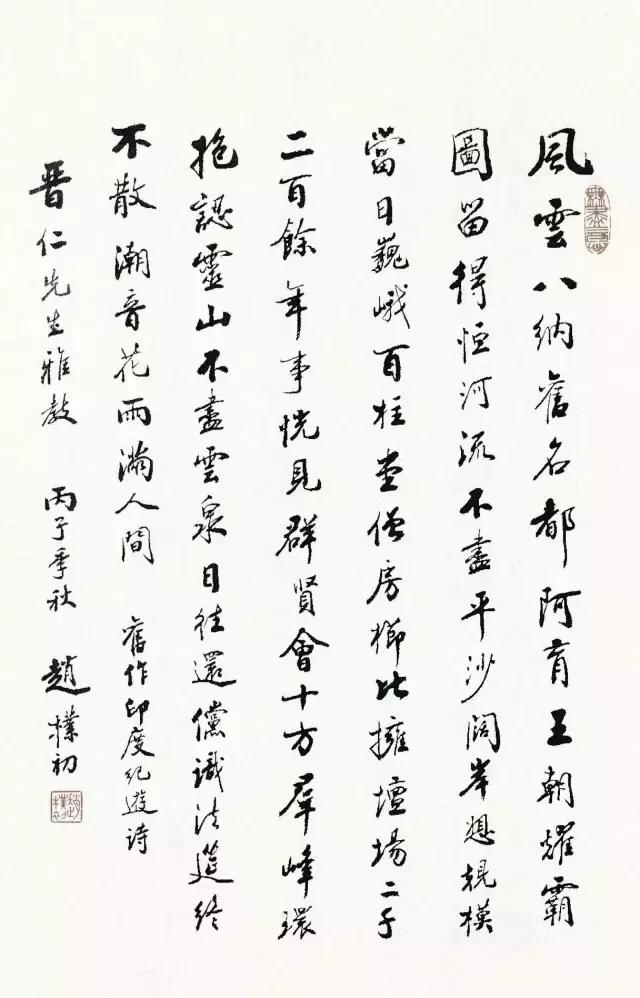 風雲八納舊名都阿育王朝耀霸
圖留得恒河流不盡平沙闊岸想規模
當日巍峨百柱堂僧房櫛比擁壇場二千
二百餘年事恍見群賢會十方羣峰環
抱認靈山不盡雲泉日往還儻識法筵終
不散潮音花雨滿人間 舊作印度紀遊詩
晋仁先生雅教 丙子季秋 趙樸初